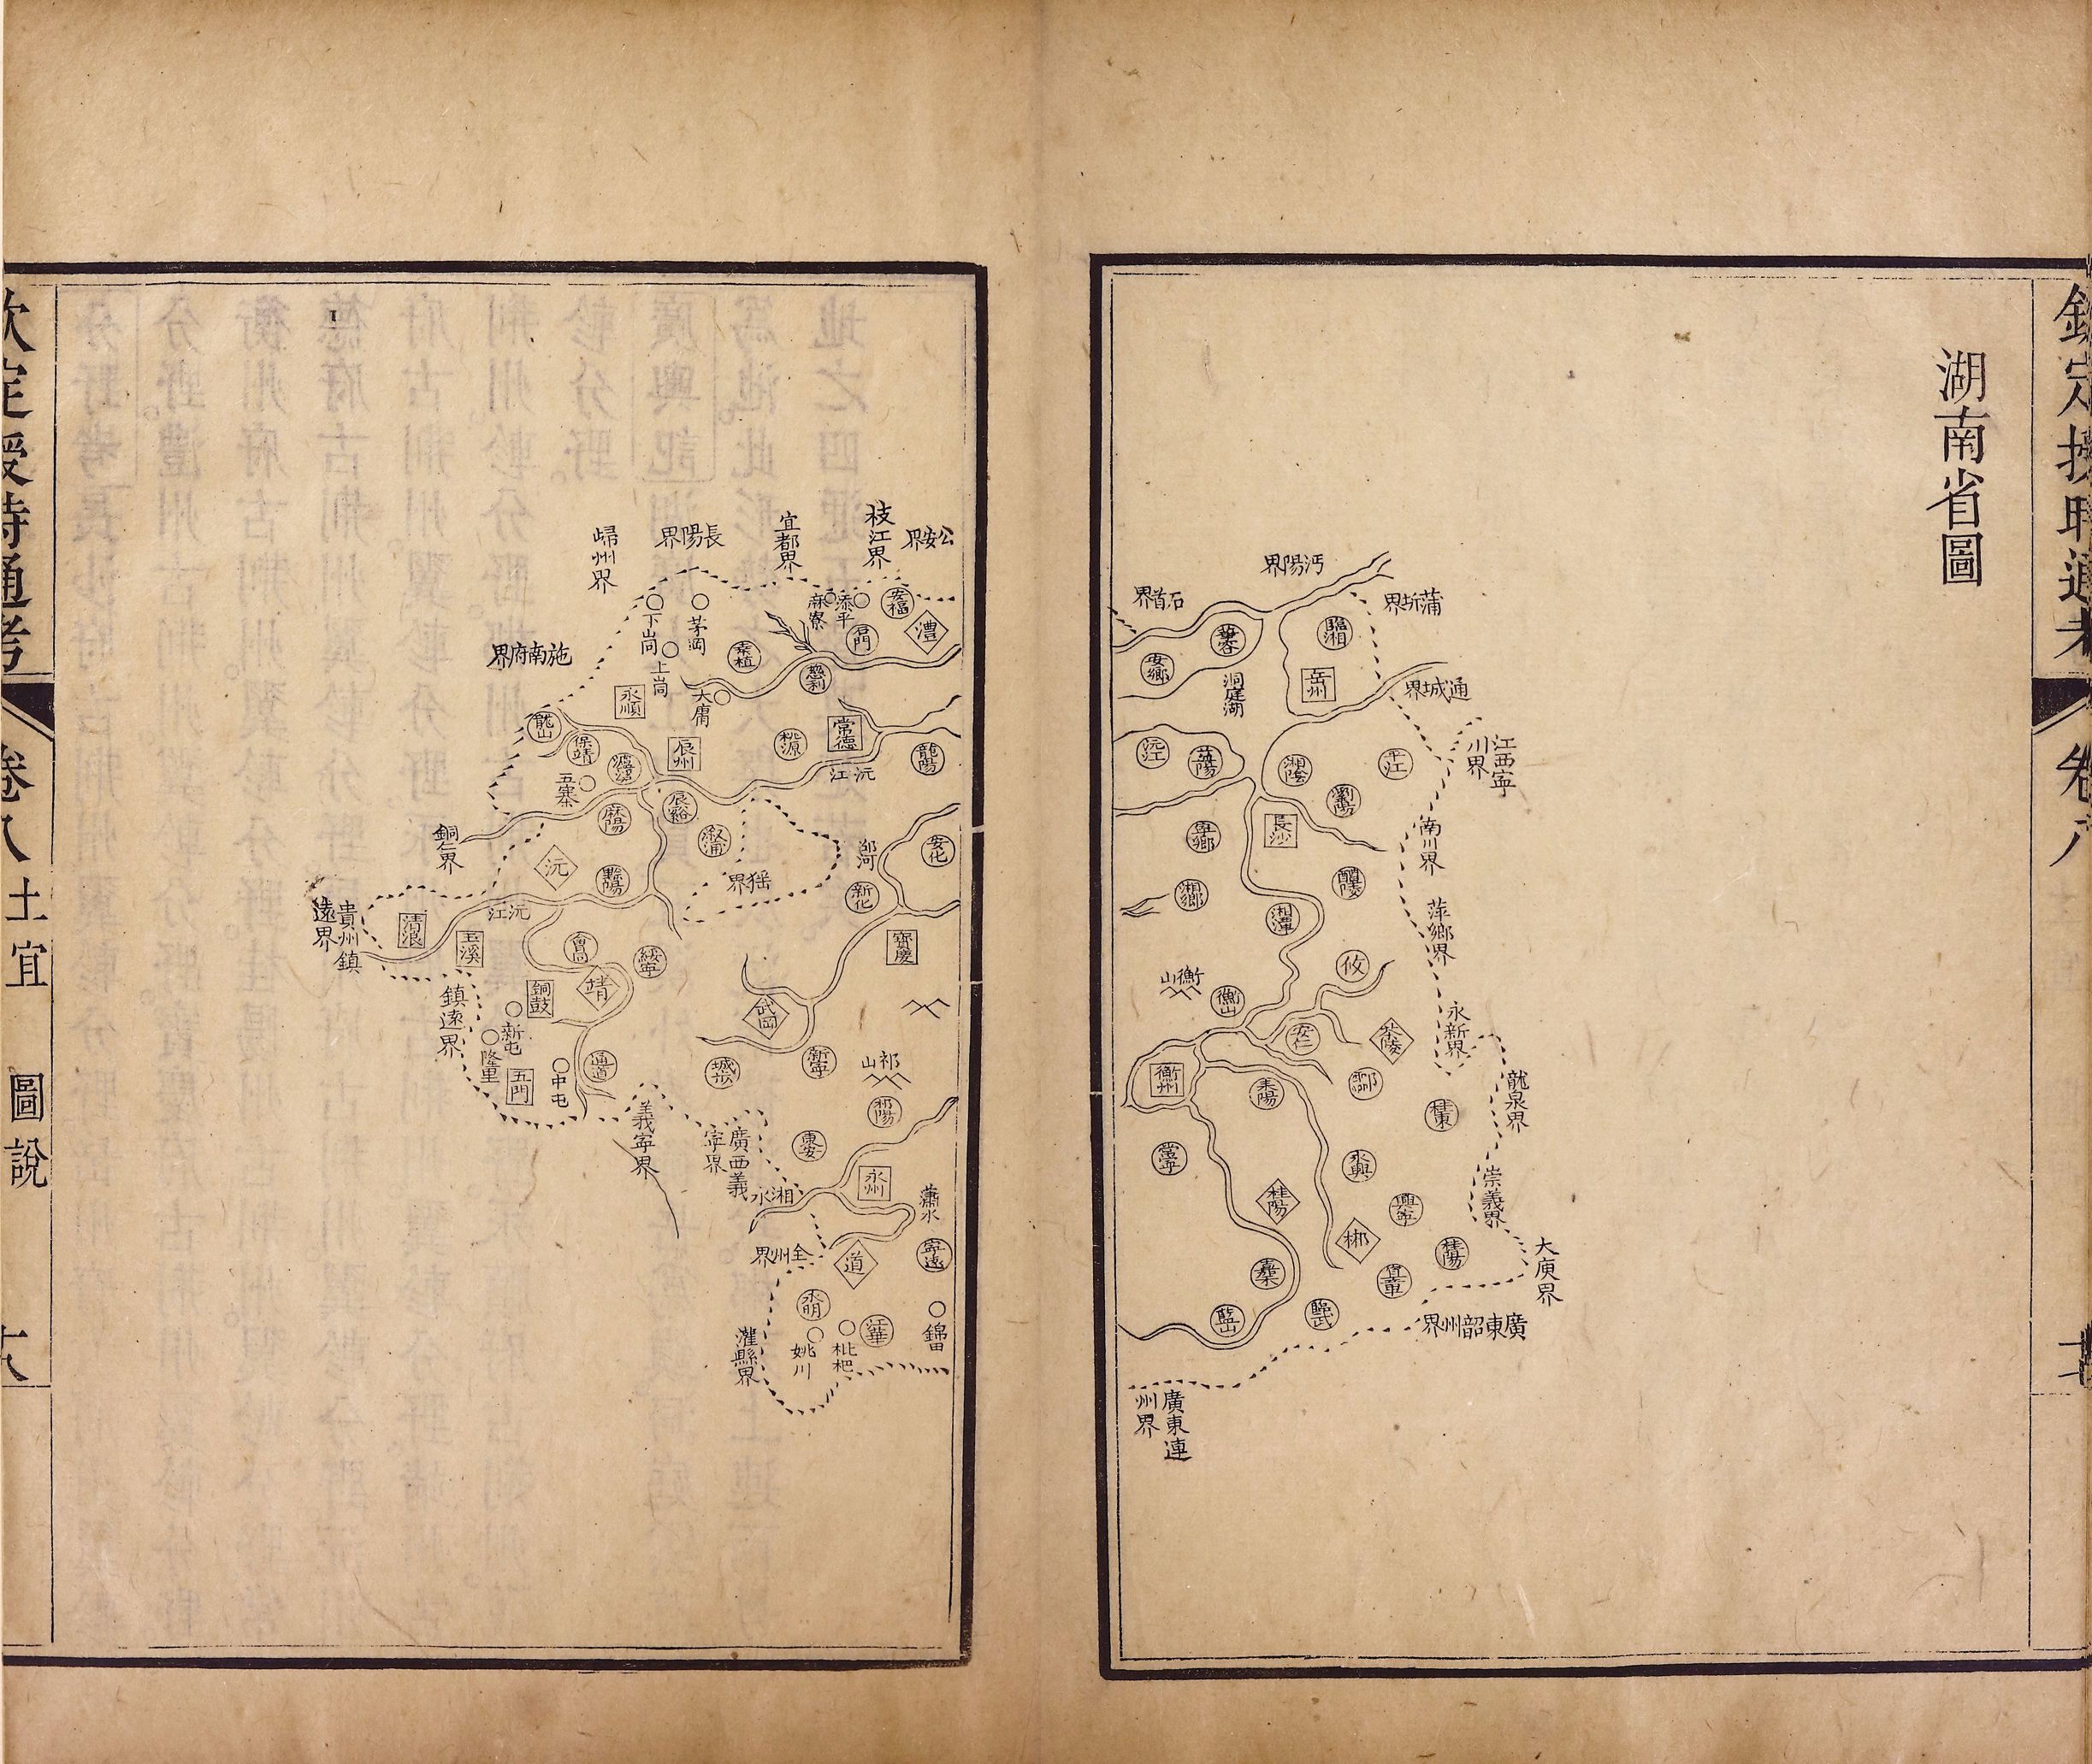 湖南省圖
沔陽界
石首界
蒲圻界
華容
臨湘
安鄉
洞庭湖
岳州
通城界
江西寧
川界
沅江
益陽
湘陰
平江
瀏陽
長沙
南川界
湘鄉
醴陵
萍鄉界
湘潭
攸
衡山
衡山
永新界
安仁
茶陵
衡州
耒陽
酃
桂東
龍泉界
常寧
永興
崇義界
桂陽
興寧
郴
桂陽
大庾界
嘉禾
宜章
藍山
臨武
廣東韶州界
廣東連
州界
公安界
枝江界
宜都界
長陽界
歸州界
安福
添平
麻寮
澧
石門
茅岡
下峝
上峝
桑植
慈利
施南府界
大庸
永順
龍山
保靖
常德
桃源
辰州
龍陽
沅江
五寨
辰谿
麻陽
漵浦
銅仁界
安化
邵河
沅
黔陽
猺界
新化
沅江
貴州鎮
遠界
清浪
玉溪
會同
綏寧
寶慶
靖
銅鼓
鎮遠界
新屯
武岡
隆里
五門
中屯
通道
城步
新寧
祁山
祁陽
義寧界
廣西義
寧界
東安
永州
湘水
瀟水
全州界
道
寧遠
永明
江華
錦田
枇杷
姚川
灌縣界
卷八
土宜
圖說